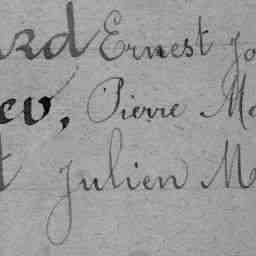 ard Ernest Jo
ev, Pierre Ma
t Julien M